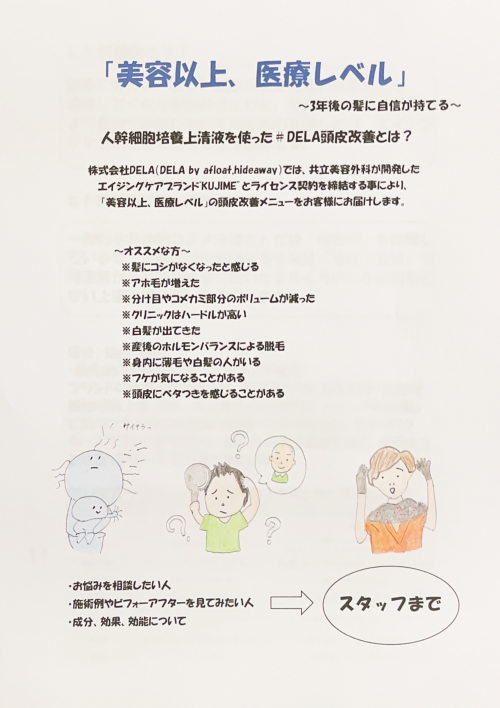 「美容以上、医療レベル」
～3年後の髪に自信が持てる～
人幹細胞培養上清液を使った＃DELA頭皮改善とは？
株式会社DELA(DELA by afloat,hideaway)では、共立美容外科が開発した
エイジングケアブランド"KUJIME"とライセンス契約を締結する事により、
「美容以上、医療レベル」の頭皮改善メニューをお客様にお届けします。
～オススメな方～
※髪にコシがなくなったと感じる
※アホ毛が増えた
※分け目やコメカミ部分のボリュームが減った
※クリニックはハードルが高い
※白髪が出てきた
※産後のホルモンバランスによる脱毛
※身内に薄毛や白髪の人がいる
※フケが気になることがある
※頭皮にベタつきを感じることがある
サイナラ～
・お悩みを相談したい人
・施術例やビフォーアフターを見てみたい人
・成分、効果、効能について
スタッフまで